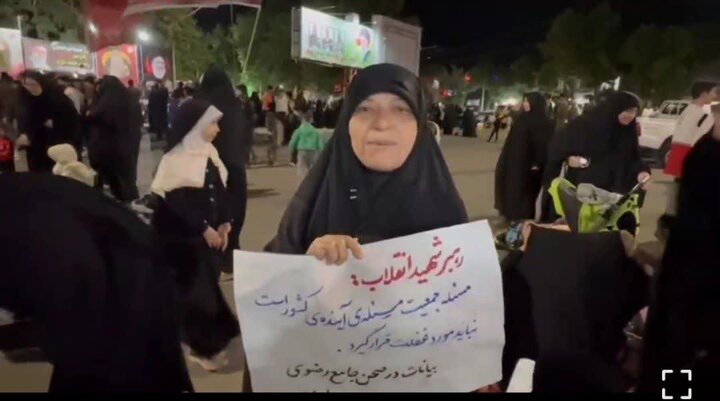 رهبر شهید انقلاب:
مسئله جمعیت مسئله‌ی آینده‌ی کشور است
نباید مورد غفلت قرار گیرد.
بیانات در صحن جامع رضوی